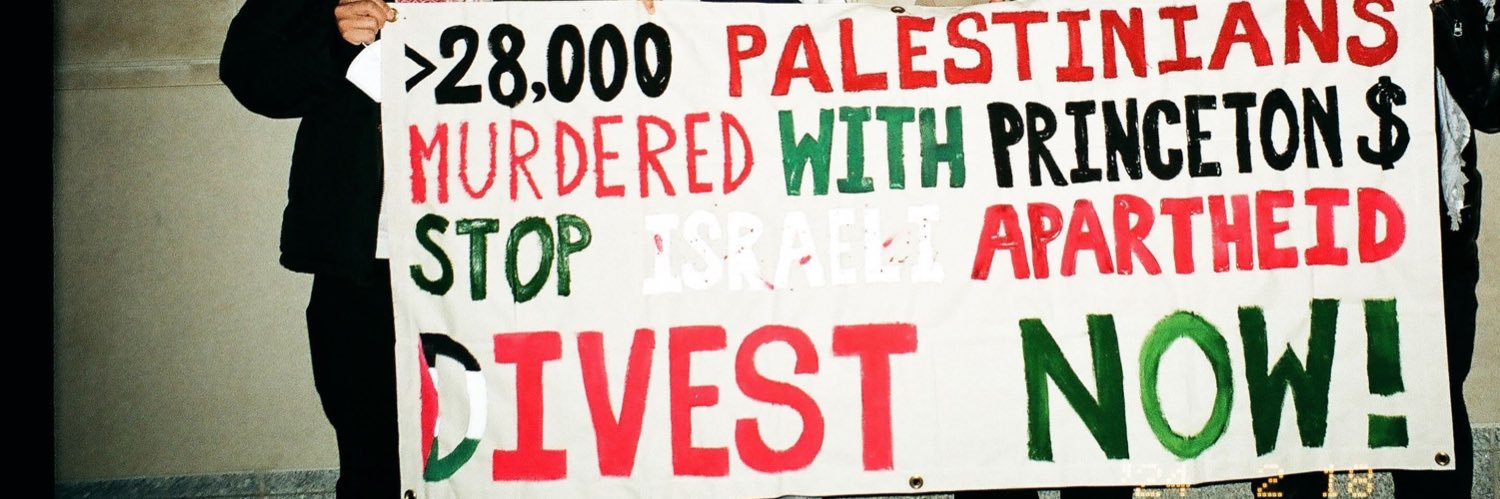 >28,000 PALESTINIANS
MURDERED WITH PRINCETON $
STOP ISRAELI APARTHEID
DIVEST NOW!
'24 2 18